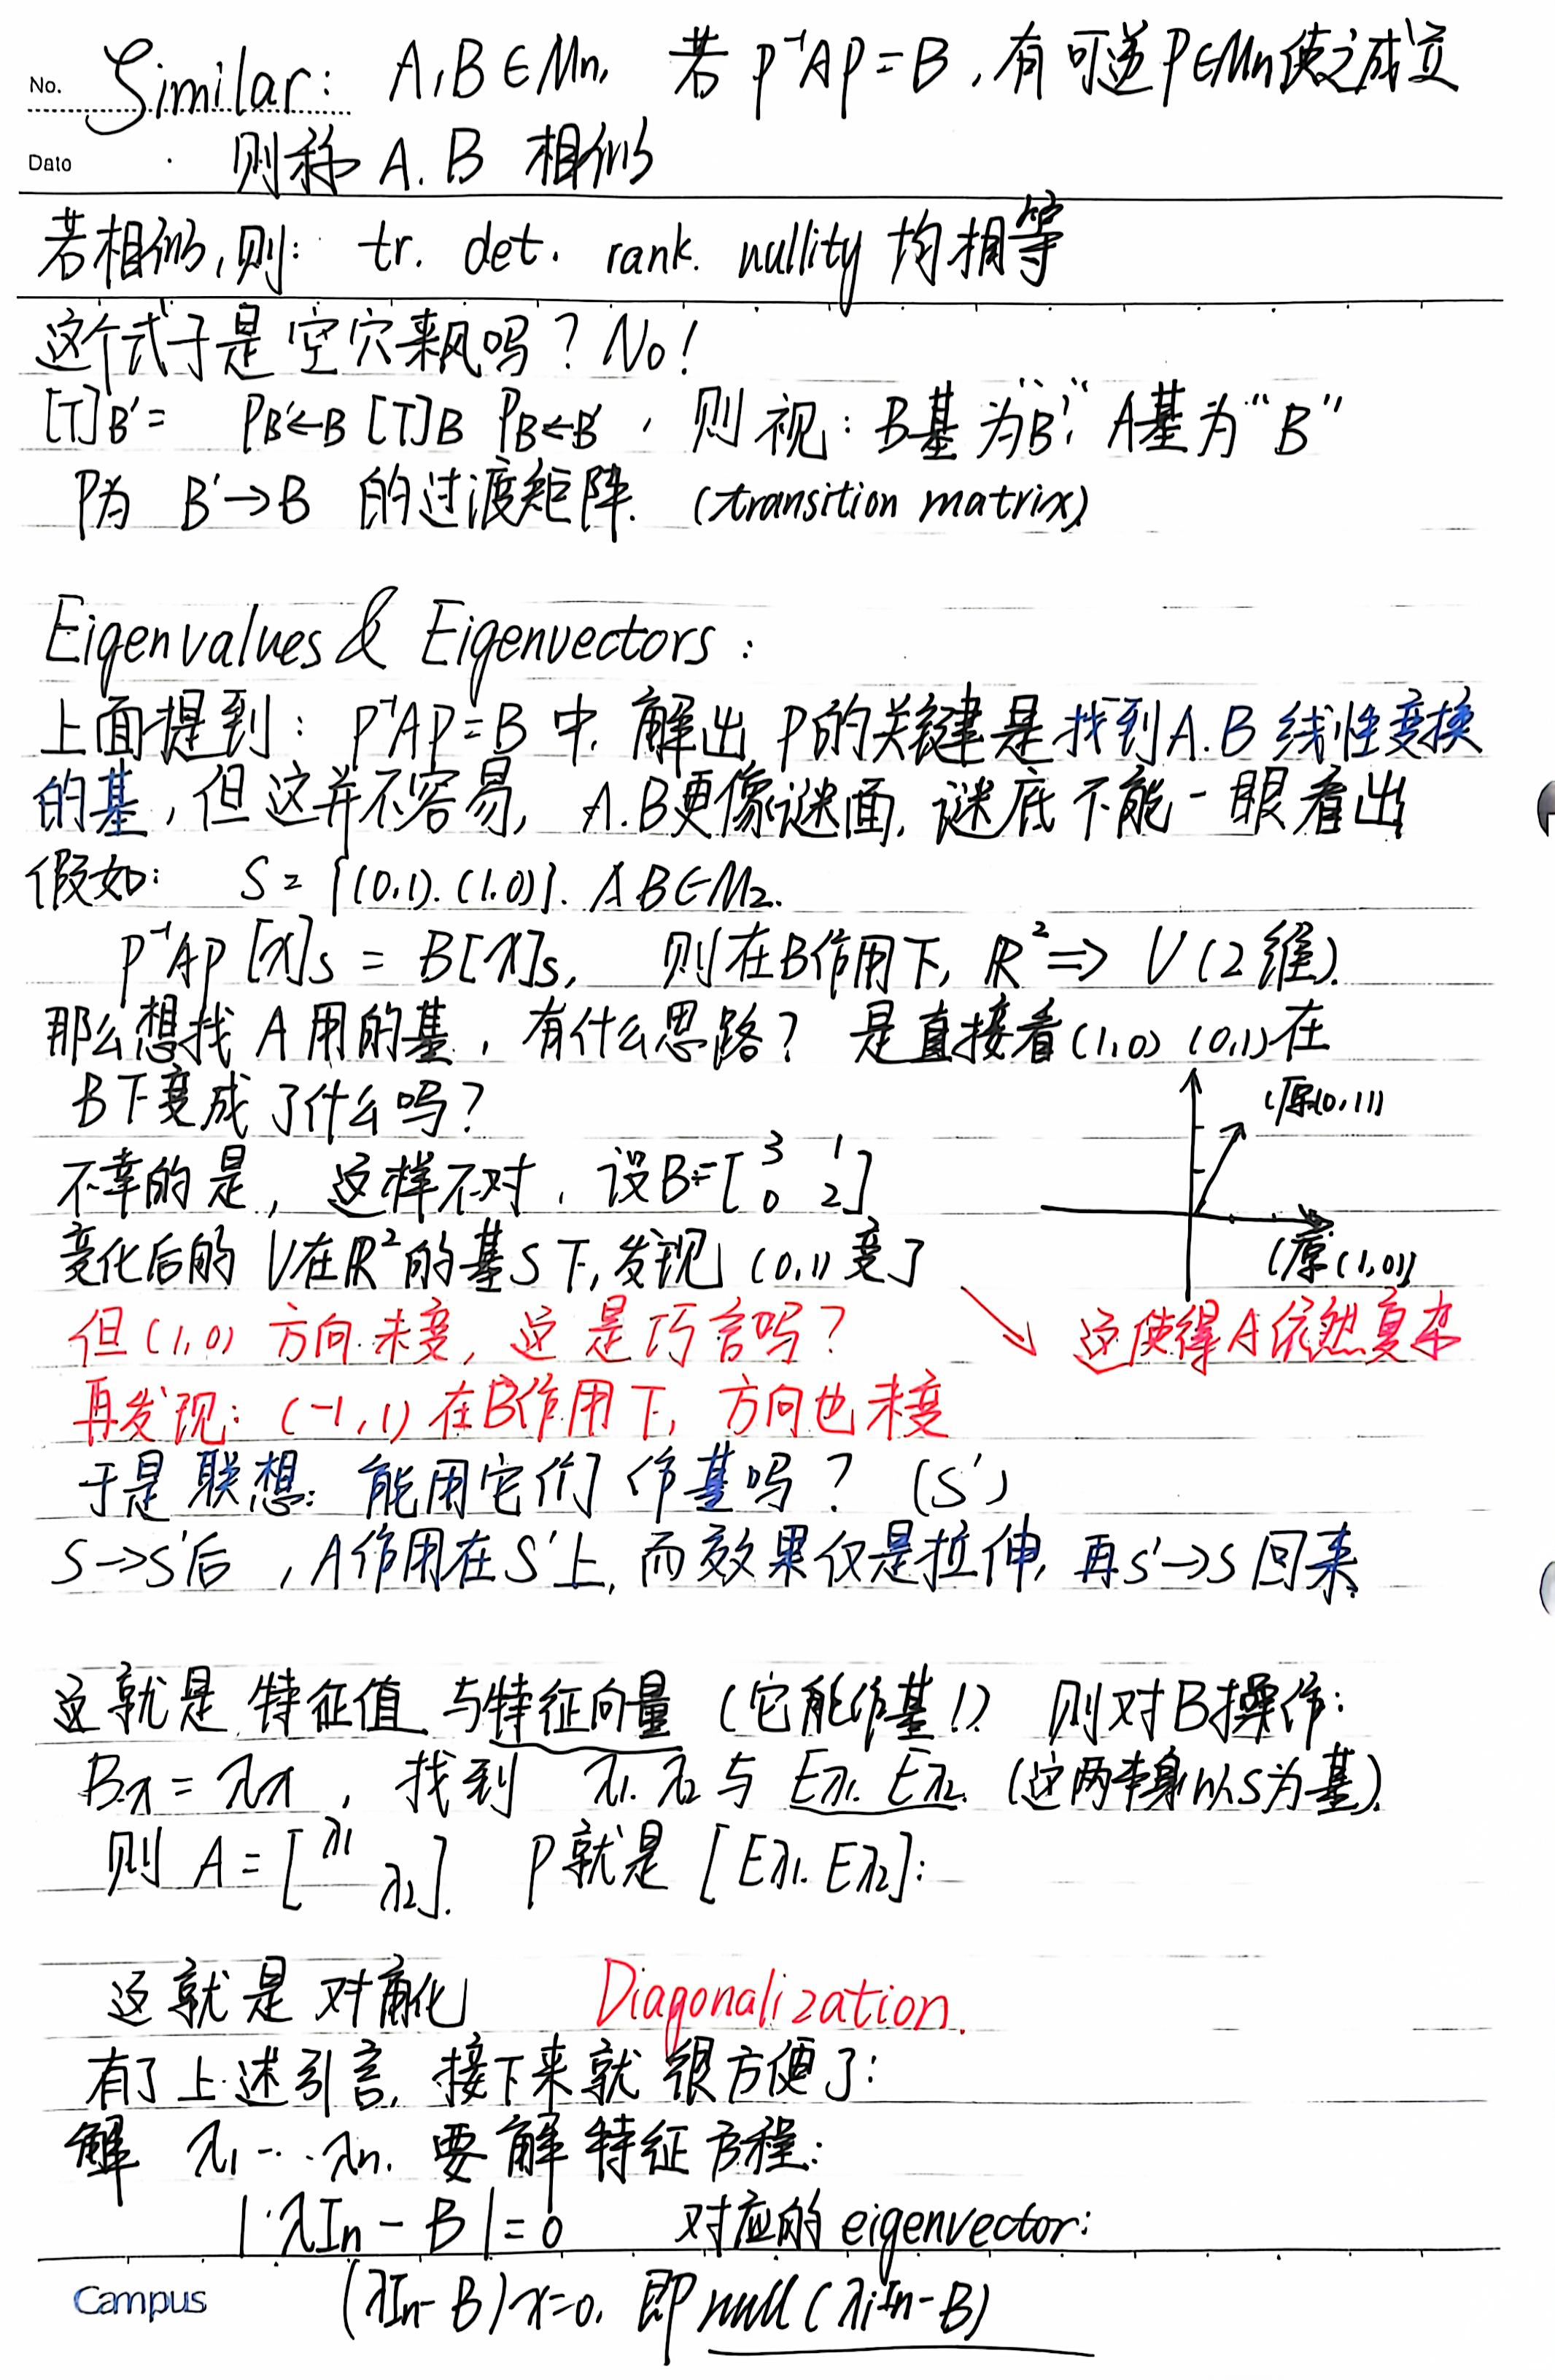 No. Similar: A,B∈Mn, 若 P⁻¹AP=B, 有可逆P∈Mn使之成立
Date 则称 A.B 相似
若相似,则: tr. det. rank. nullity 均相等
这个式子是空穴来风吗? No!
[T]B'= PB'←B [T]B PB←B', 则视: B基为"B'", A基为"B"
P为 B'→B 的过渡矩阵. (transition matrix)
Eigenvalues & Eigenvectors:
上面提到: P⁻¹AP=B 中, 解出 P的关键是找到A.B 线性变换
的基, 但这并不容易, A.B更像谜面, 谜底不能一眼看出
假如: S = {(0,1).(1,0)}. A B∈M2.
P⁻¹AP [x]s = B[x]s, 则在B作用下, R² ⇒ V (2维).
那么想找 A 用的基, 有什么思路? 是直接看(1,0) (0,1)在
B下变成了什么吗?
(原(0,1))
不幸的是, 这样不对, 设B=[3 1
0 2]
变化后的 V在R²的基S下,发现 (0,1)变了
(原(1,0))
但(1,0) 方向未变, 这是巧合吗?
这使得A依然复杂
再发现: (-1,1) 在B作用下, 方向也未变
于是联想: 能用它们作基吗? (S')
S→S'后, A作用在S'上, 而效果仅是拉伸, 再S'→S 回来.
这就是 特征值 与特征向量 (它能作基!) 则对B操作:
Bx = λx, 找到 λ1.λ2 与 Eλ1. Eλ2. (这两本身以S为基).
则 A = [λ1
λ2]. P就是 [Eλ1. Eλ2]:
这就是 对角化 Diagonalization.
有了上述引言, 接下来就很方便了:
解 λ1 -··λn. 要解特征方程:
|λIn - B| = 0 对应的 eigenvector:
Campus (λIn-B)x=0, 即 null(λiIn-B)